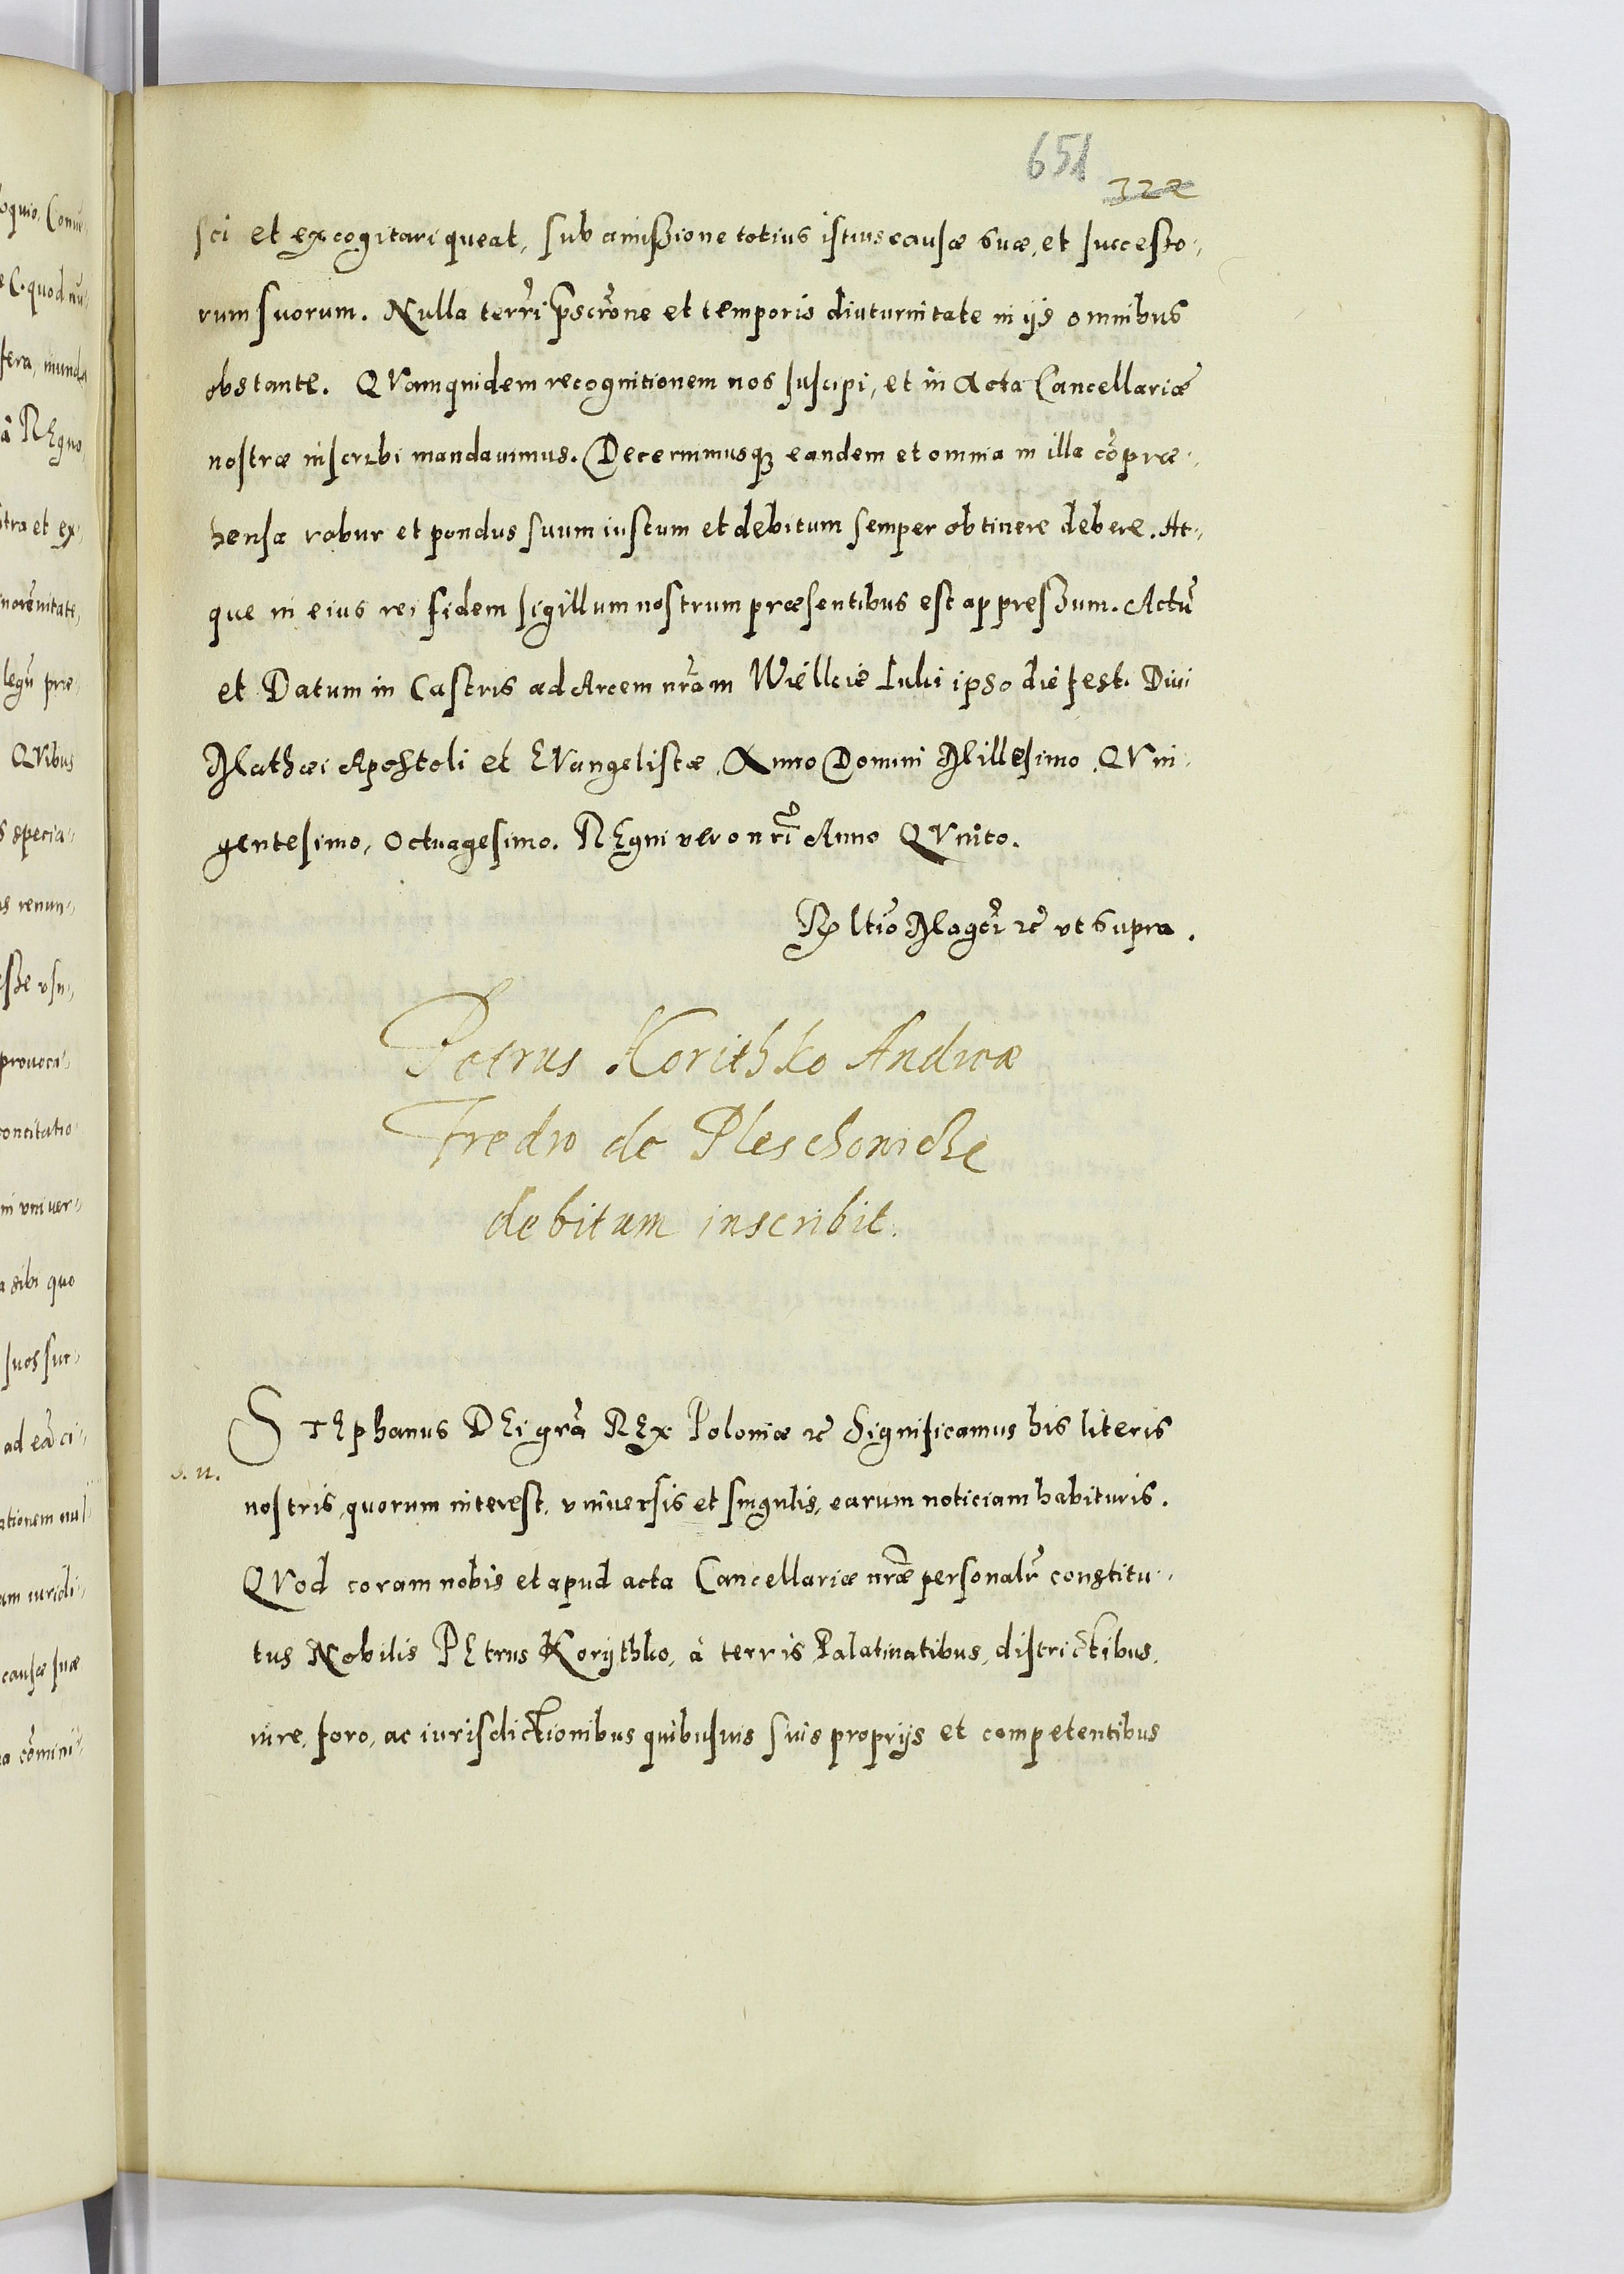 651
322
sci et excogitari queat, sub amissione totius istius causæ suæ, et successo-
rum suorum. Nulla terrî pscrõne et temporis diuturnitate in ijs omnibus
obstante. QVamquidem recognitionem nos suscipi, et in Acta Cancellariæ
nostræ inscribi mandauimus. Decernimusq3 eandem et omnia in illa cõpræ-
hensa robur et pondus suum iustum et debitum semper obtinere debere. At-
que in eius rei fidem sigillum nostrum præsentibus est appressum. Actũ
et Datum in Castris ad Arcem nrãm Wiellcie Luki ipso die fest. Diui
Mathæi Apostoli et EVangelistæ, Anno Domini Millesimo, QVin-
gentesimo, Octuagesimo. REgni vero nrĩ Anno QVinto.
Rltio Magcĩ &c vt supra.
Petrus Korithko Andreæ
Fredro de Pleschowicze
debitum inscribit.
STEphanus DEi grã REx Poloniæ &c Significamus his literis
s. n.
nostris, quorum interest, vniuersis et singulis, earum noticiam habituris.
QVod coram nobis et apud acta Cancellariæ nræ personalr constitu-
tus Nobilis PEtrus Korythko, à terris Palatinatibus, districtibus,
iure, foro, ac iurisdictionibus quibusuis suis proprijs et competentibus
oquio, Conue-
fera, munda
à REgno,
itra et ex-
legũ præ-
QVibus
s specia-
as renun-
prouoca-
concitatio
in vniuer-
a sibi quo
suos suc-
ad eã ci-
ationem nul
am iuridi-
causæ suæ